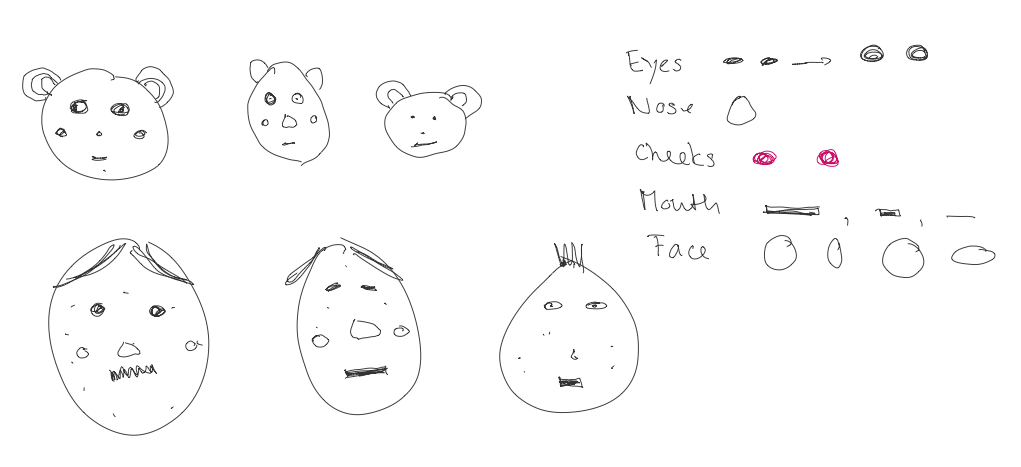 Eyes
Nose
Cheeks
Mouth , ,
Face